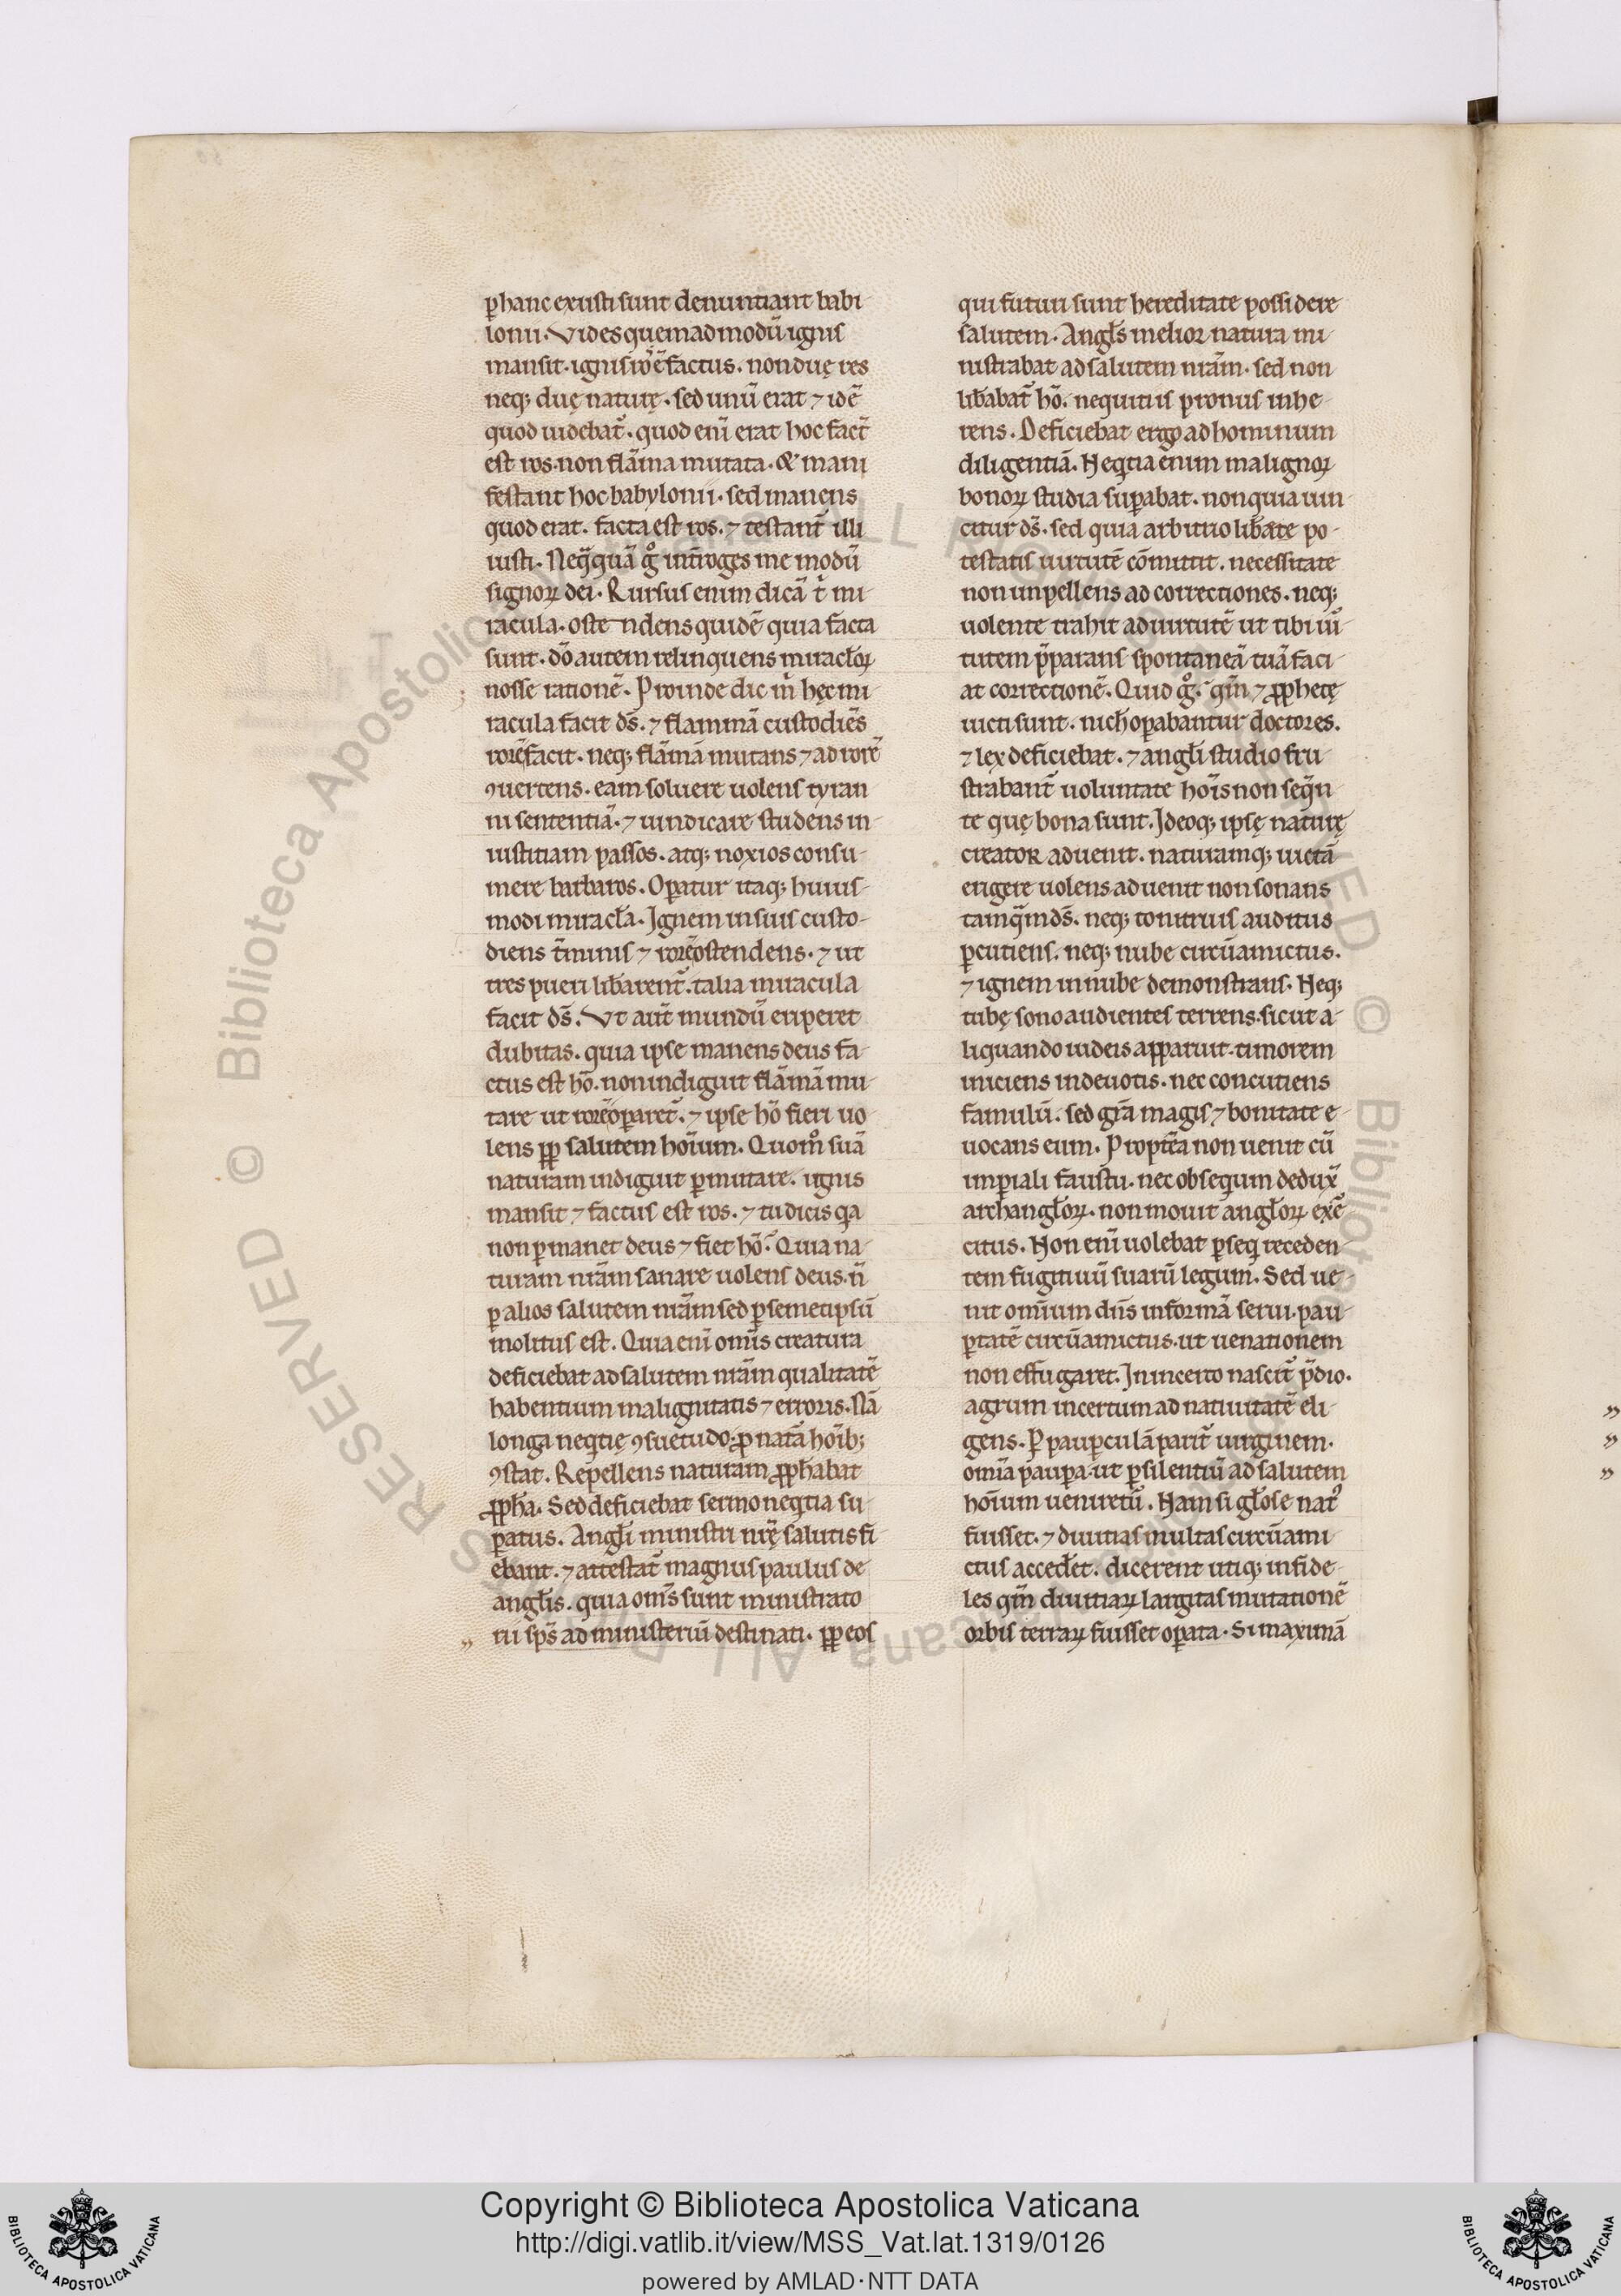 ꝑ hanc exusti sunt denuntiant babi-
lonii. Vides quemadmodũ ignis
mansit. ignis rorẽ factus. non duę res
neq; duę naturę. sed unũ erat ⁊ idẽ
quod uidebat̃. quod enĩ erat hoc fact̃
est ros. non flãma mutata. & mani
festant hoc babylonii. sed manens
quod erat. facta est ros. ⁊ testant̃ illi
iusti. Neq̃quã gͦ int̃roges me modũ
signoꝝ dei. Rursus enim dicã t̃ mi-
racula. ostendens quidẽ quia facta
sunt. dõ autem relinquens miracl̃oꝝ
nosse rationẽ. Proinde dic m̃ hęc mi-
racula facit ds̃. ⁊ flammã custodiẽs
rorẽ facit. neq; flãmã mutans ⁊ ad rorẽ
ꝯuertens. eam soluere uolens tyran
ni sententiã. ⁊ uindicare studens in-
iustitiam passos. atq; noxios consu-
mere barbaros. Oꝑatur itaq; huius-
modi miracl̃a. Ignem in suis custo-
diens t̃minis ⁊ rorẽ ostendens. ⁊ ut
tres pueri lib̃arent̃. talia miracula
facit ds̃. Vt aut̃ mundũ eriperet
dubitas. quia ipse manens deus fa-
ctus est hõ. non indiguit flãmã mu-
tare ut rorẽ oꝑaret̃. ⁊ ipse hõ fieri uo
lens ꝓp salutem hoĩum. Quomͦ suã
naturam indiguit ꝑmutare. ignis
mansit ⁊ factus est ros. ⁊ tu dicis qa
non ꝑmanet deus ⁊ fiet hõ. Quia na-
turam nr̃am sanare uolens deus. ñ
ꝑ alios salutem nr̃am sed ꝑ semetipsũ
molitus est. Quia enĩ omĩs creatura
deficiebat ad salutem nr̃am qualitatẽ
habentium malignitatis ⁊ erroris. Nã
longa neqtię ꝯsuetudo. ꝓ nat̃a hoĩb;
ꝯstat. Repellens naturam ꝓph̃abat
ꝓph̃a. Sed deficiebat sermo neqtia su-
ꝑatus. Angl̃i ministri nr̃ę salutis fi-
ebant. ⁊ attestat̃ magnus paulus de
angl̃is. quia oms̃ sunt ministrato
rii sps̃ ad ministeriũ destinati. ꝓp eos
qui futuri sunt hereditate possidere
salutem. Angl̃s melior natura mi-
nistrabat ad salutem nr̃am. sed non
lib̃abat̃ hõ. nequitiis pronus inhe-
rens. Deficiebat ergo ad hominum
diligentiã. Neqtia enim malignoꝝ
bonoꝝ studia suꝑabat. non quia uin-
citur ds̃. sed quia arbitrio lib̃ate po-
testatis uirtutẽ cõmittit. necessitate
non impellens ad correctiones. neq;
uolente trahit ad uirtutẽ ut tibi uĩ-
tutem p̃parans spontaneã tuã faci-
at correctionẽ. Quid gͦ. qm̃ ⁊ ꝓphetę
uicti sunt. nich̃ oꝑabantur doctores.
⁊ lex deficiebat. ⁊ angl̃i studio fru-
strabant̃ uoluntate hoĩs non seq̃n-
te quę bona sunt. Ideoq; ipsę naturę
creator aduenit. naturamq; uictã
erigere uolens aduenit non sonans
tamq̃m ds̃. neq; tonitruis auditus
ꝑcutiens. neq; nube circũamictus.
⁊ ignem in nube demonstrans. Neq;
tubę sono audientes terrens. sicut a-
liquando iudeis apparuit. timorem
iniciens indeuotis. nec concutiens
famulũ. sed gr̃a magis ⁊ bonitate e-
uocans eum. Propt̃ea non uenit cũ
imꝑiali faustu. nec obsequium dedux̃
archangl̃oꝝ. non mouit angl̃oꝝ exc̃
citus. Non enĩ uolebat ꝑseq receden-
tem fugitiuũ suarũ legum. Sed ue-
nit omĩum dñs in formã serui. pau-
ꝑtatẽ circũamictus. ut uenationem
non effugaret. In incerto nascit̃ p̃dio.
agrum incertum ad natiuitatẽ eli-
gens. Ꝑ pauꝑculã parit̃ uirginem.
omĩa pauꝑa. ut ꝑ silentiũ ad salutem
hoĩum ueniretũ. Nam si gl̃ose nat᾿
fuisset. ⁊ diuitias multas circũami-
ctus accedet̃. dicerent utiq; infide-
les qm̃ diuitiaꝝ largitas mutationẽ
orbis terraꝝ fuisset oꝑata. Si maximã
Copyright © Biblioteca Apostolica Vaticana
http://digi.vatlib.it/view/MSS_Vat.lat.1319/0126
powered by AMLAD·NTT DATA
BIBLIOTECA APOSTOLICA VATICANA
BIBLIOTECA APOSTOLICA VATICANA
© Biblioteca Apostolica Vaticana ALL RIGHTS RESERVED